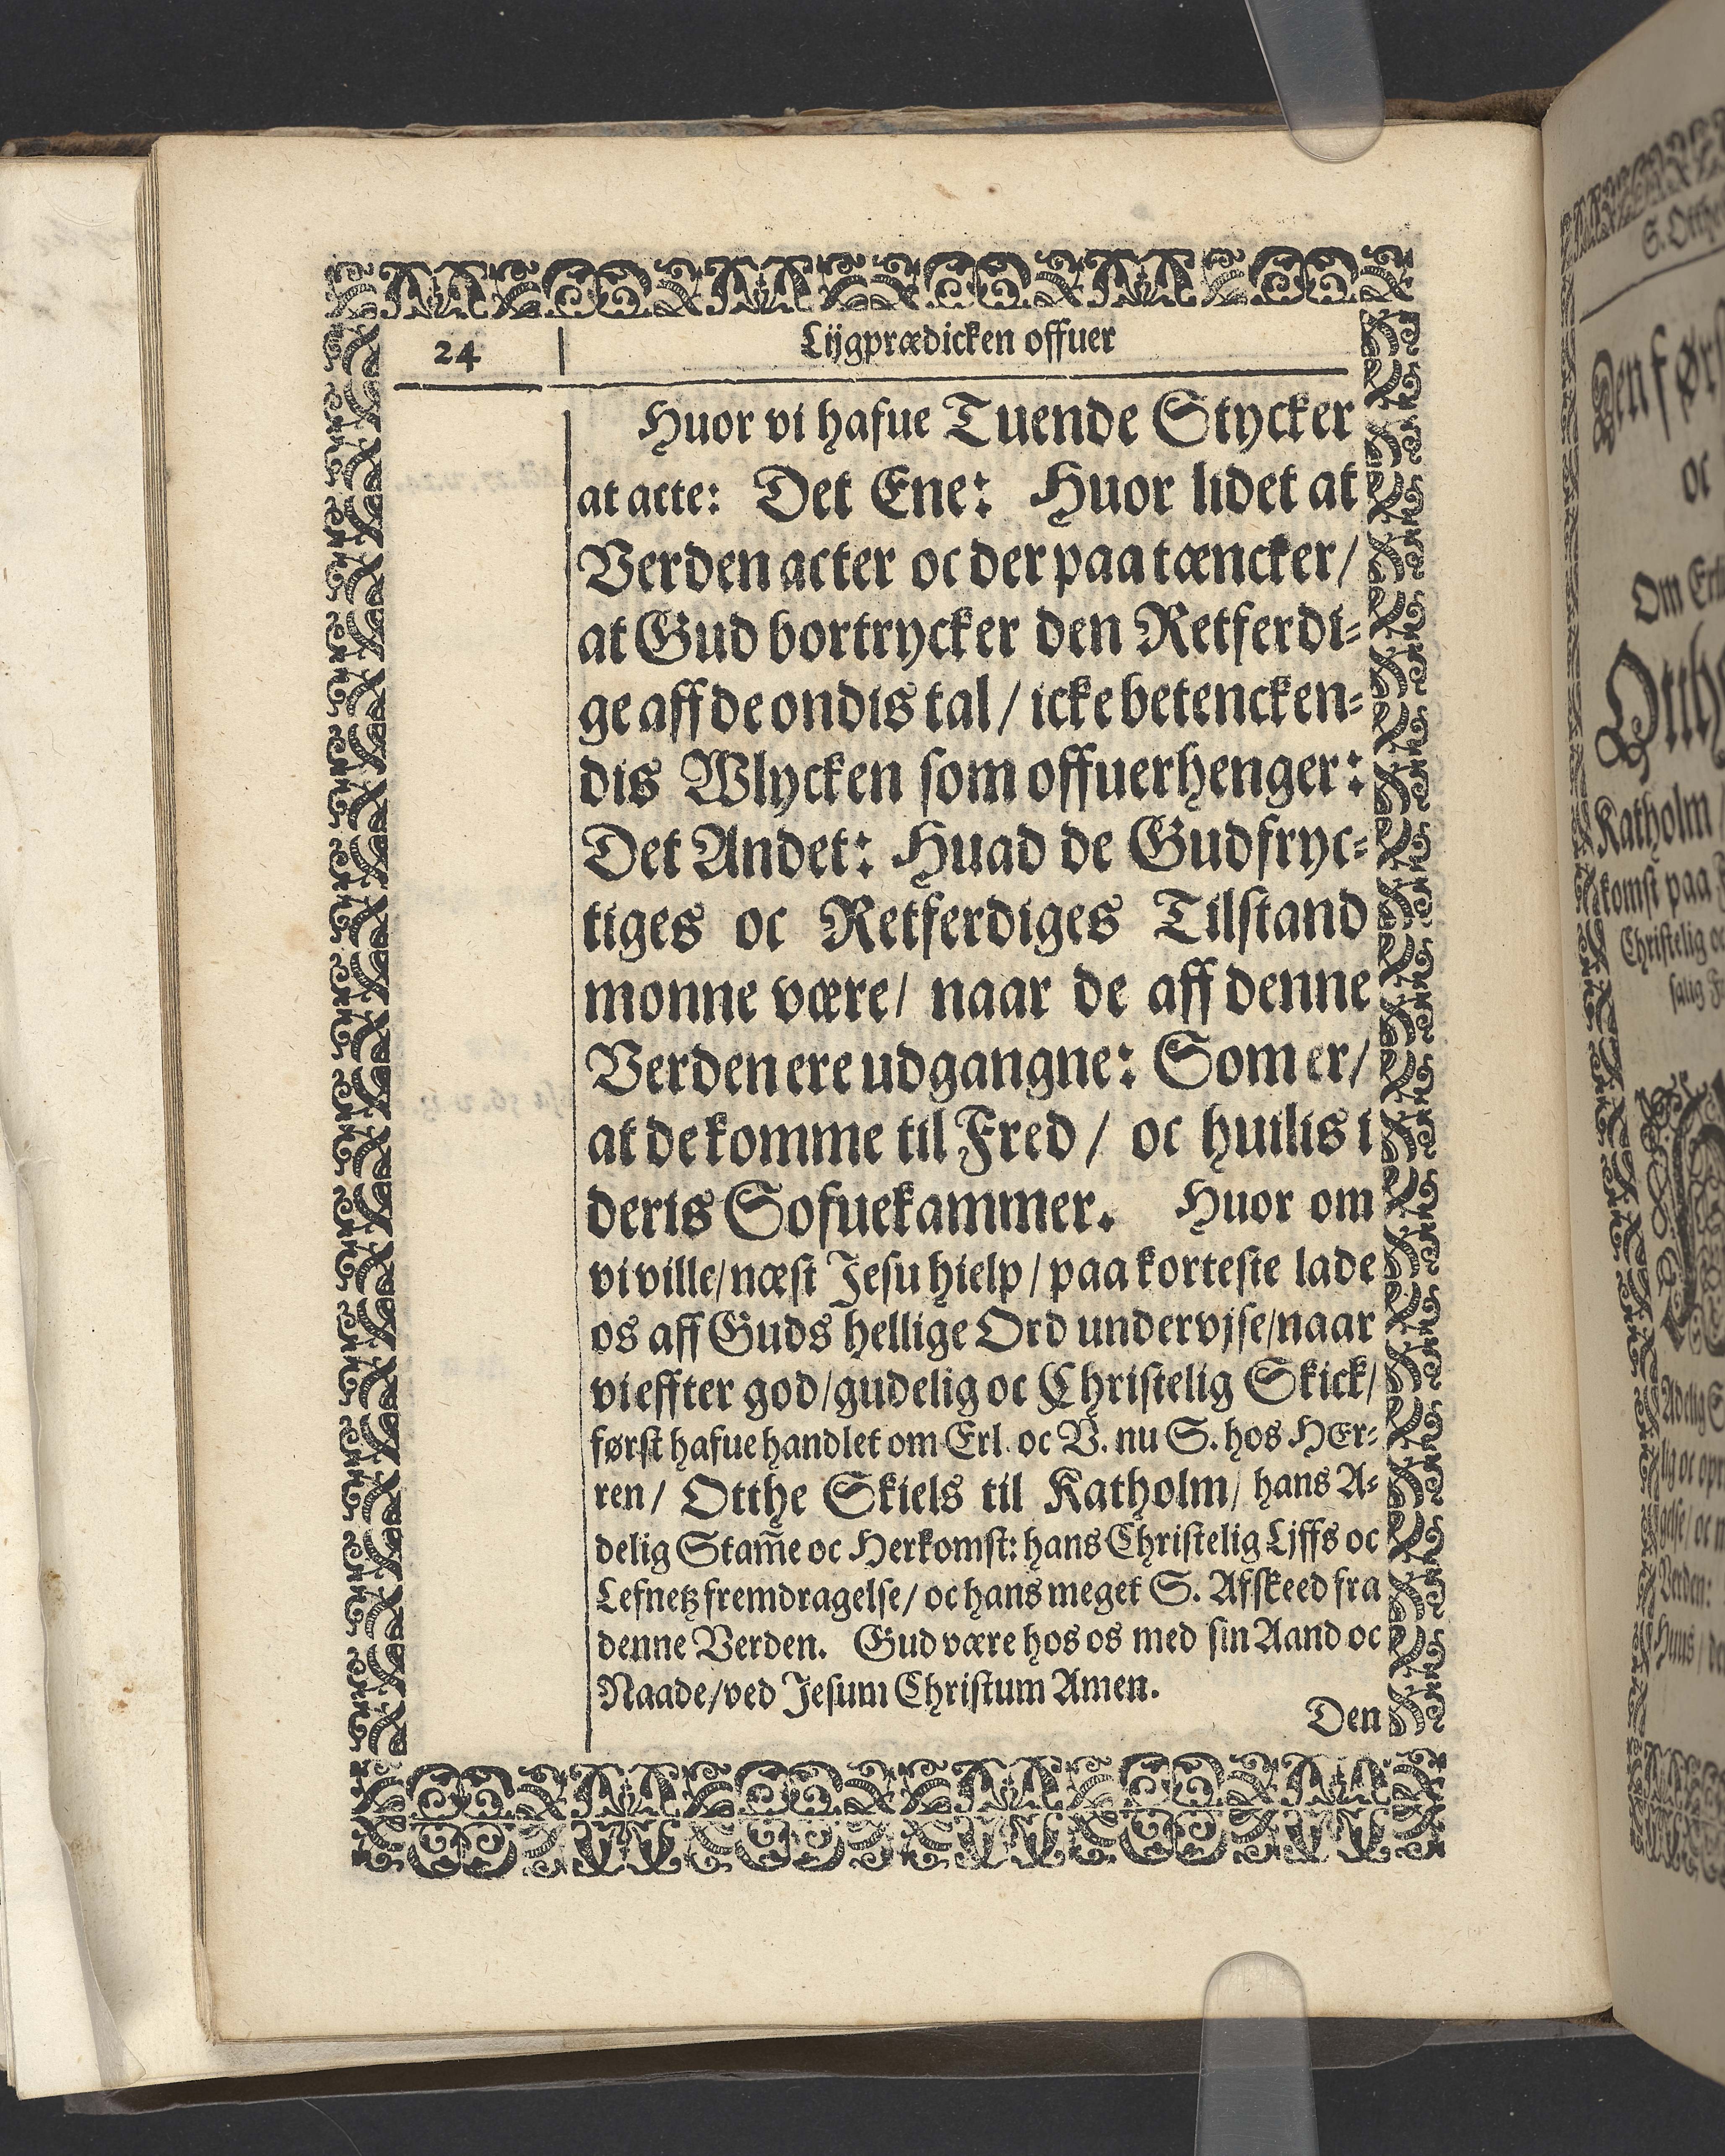 24
Lijgprædicken offuer
Huor vi hafue Tuende Stycker
at acte: Det Ene: Huor lidet at
Verden acter oc der paa tæncker/
at Gud bortrycker den Retferdi-
ge aff de ondis tal/ icke betencken-
dis Wlycken som offuerhenger:
Det Andet: Huad de Gudfryc-
tiges oc Retferdiges Tilstand
monne være/ naar de aff denne
Verden ere udgangne: Som er/
at de komme til Fred/ oc huilis i
deris Sofuekammer. Huor om
vi ville/ næst Jesu hielp/ paa korteste lade
os aff Guds hellige Ord undervjse/ naar
vi effter god/ gudelig oc Christelig Skick/
først hafue handlet om Erl. oc V. nu S. hos HEr-
ren/ Otthe Skiels til Katholm/ hans A-
delig Stam̅e oc Herkomst: hans Christelig Ljffs oc
Lefnetz fremdragelse/ oc hans meget S. Afskeed fra
denne Verden. Gud være hos os med sin Aand oc
Naade/ ved Jesum Christum Amen.
Den
S. Otthe
oc
Katholm/
komst paa
Christelig oc
salig
Adelig
lig oc
Verden:
Huus/